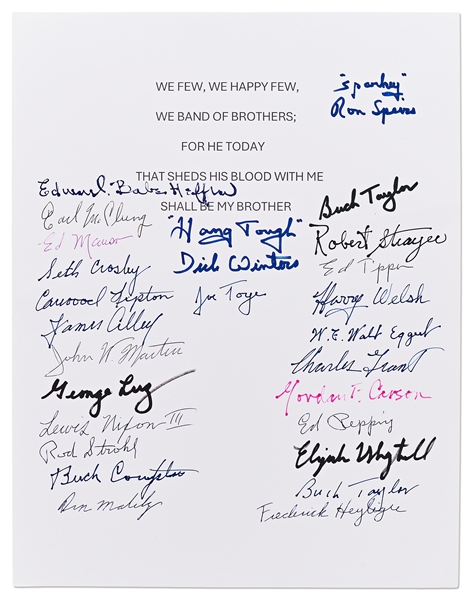 WE FEW, WE HAPPY FEW,
WE BAND OF BROTHERS;
FOR HE TODAY
THAT SHEDS HIS BLOOD WITH ME
SHALL BE MY BROTHER
"Sparky"
Ron Speirs
Edward "Babe" Heffron
Earl McClung
Ed Mauser
Seth Crosby
Carwood Lipton
James Alley
John W. Martin
George Luz
Lewis Nixon III
Rod Strohl
Buck Compton
Don Malarkey
"Hang Tough"
Dick Winters
Joe Toye
Buck Taylor
Robert Strayer
Ed Tipper
Harry Welsh
W.E. Walt Eggert
Charles Grant
Gordon F. Carson
Ed Pepping
Elijah Whytsell
Buck Taylor
Frederick Heyliger